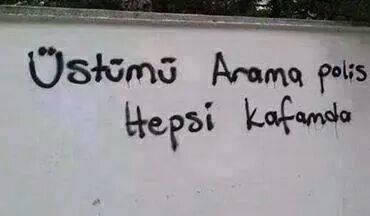 Üstümü Arama polis
Hepsi Kafamda